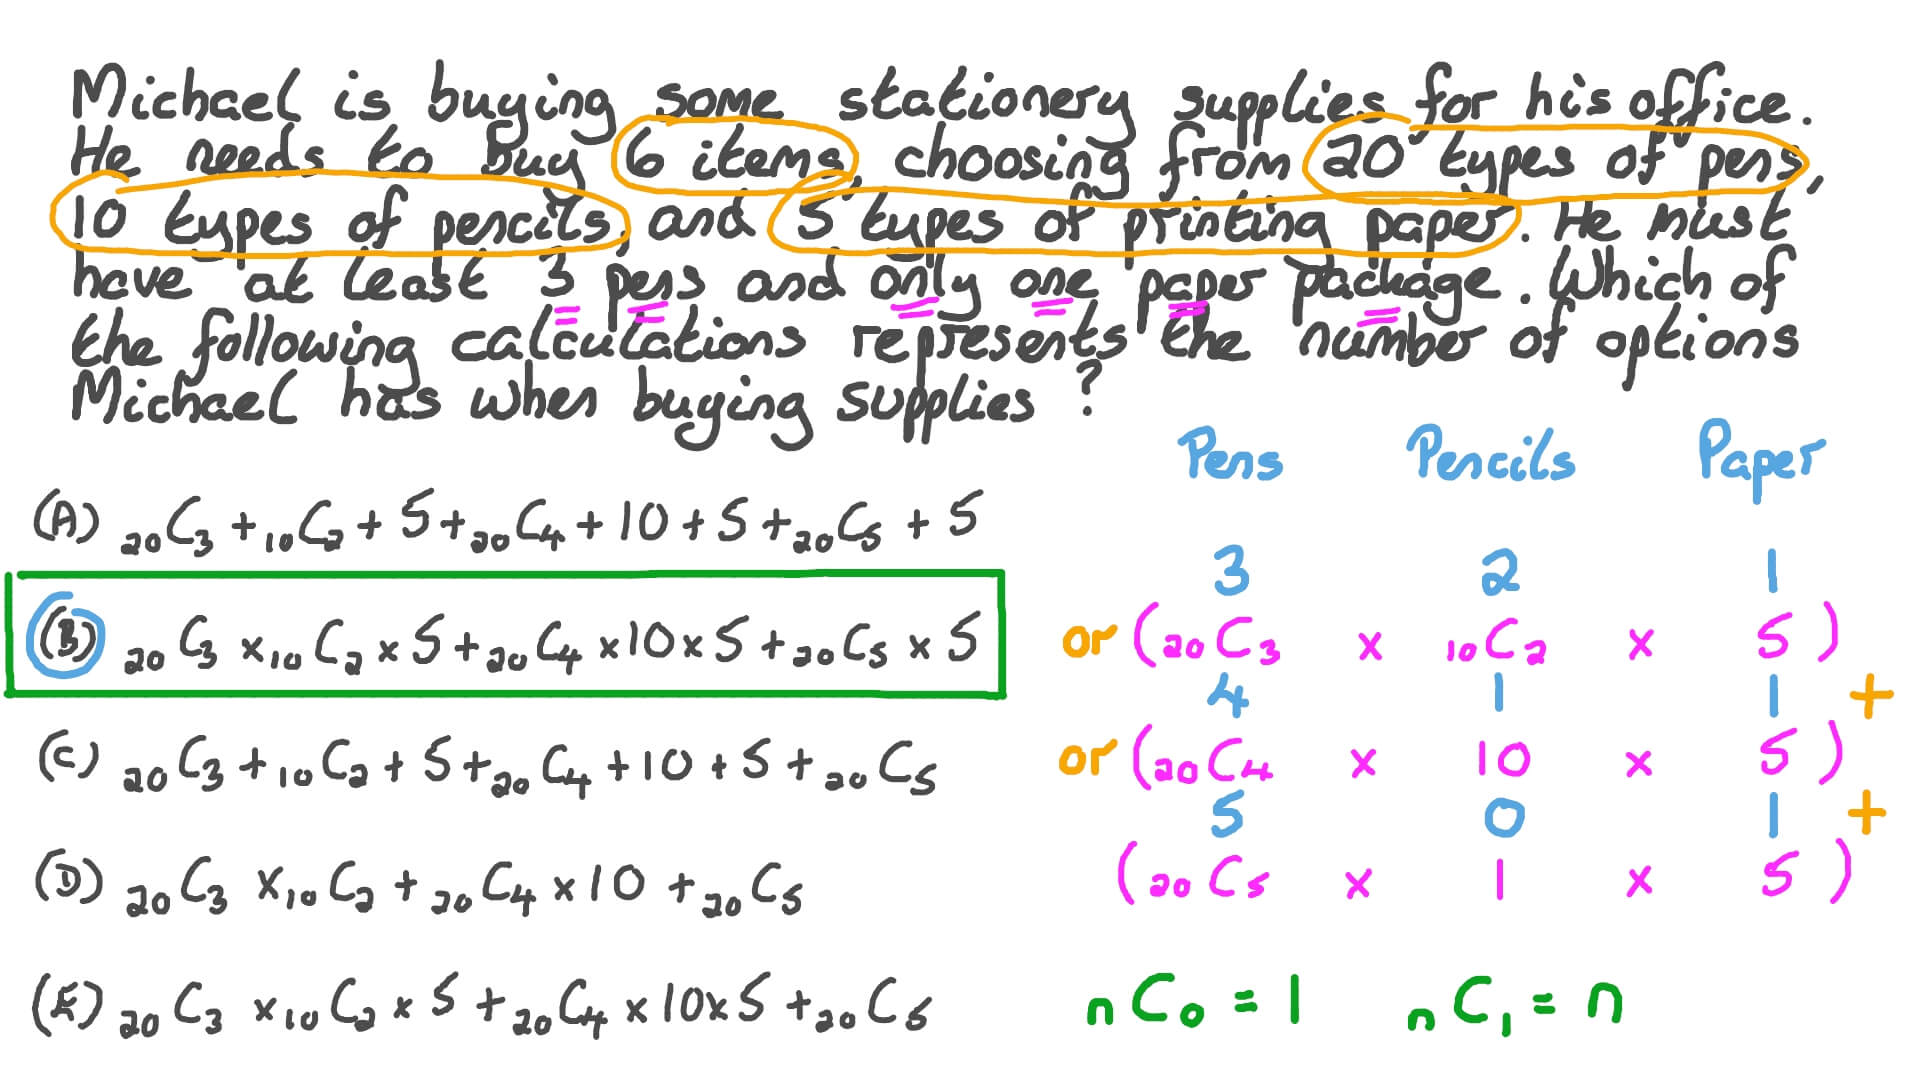 Michael is buying some stationery supplies for his office.
He needs to buy 6 items, choosing from 20 types of pens,
10 types of pencils, and 5 types of printing paper. He must
have at least 3 pens and only one paper package. Which of
the following calculations represents the number of options
Michael has when buying supplies?
Pens Pencils Paper
(A) ₂₀C₃ + ₁₀C₂ + 5 + ₂₀C₄ + 10 + 5 + ₂₀C₅ + 5
3 2 1
(B) ₂₀C₃ × ₁₀C₂ × 5 + ₂₀C₄ × 10 × 5 + ₂₀C₅ × 5
or (₂₀C₃ × ₁₀C₂ × 5)
4 1 1 +
(C) ₂₀C₃ + ₁₀C₂ + 5 + ₂₀C₄ + 10 + 5 + ₂₀C₅
or (₂₀C₄ × 10 × 5)
5 0 1 +
(D) ₂₀C₃ × ₁₀C₂ + ₂₀C₄ × 10 + ₂₀C₅
(₂₀C₅ × 1 × 5)
(E) ₂₀C₃ × ₁₀C₂ × 5 + ₂₀C₄ × 10 × 5 + ₂₀C₅
ₙC₀ = 1 ₙC₁ = n